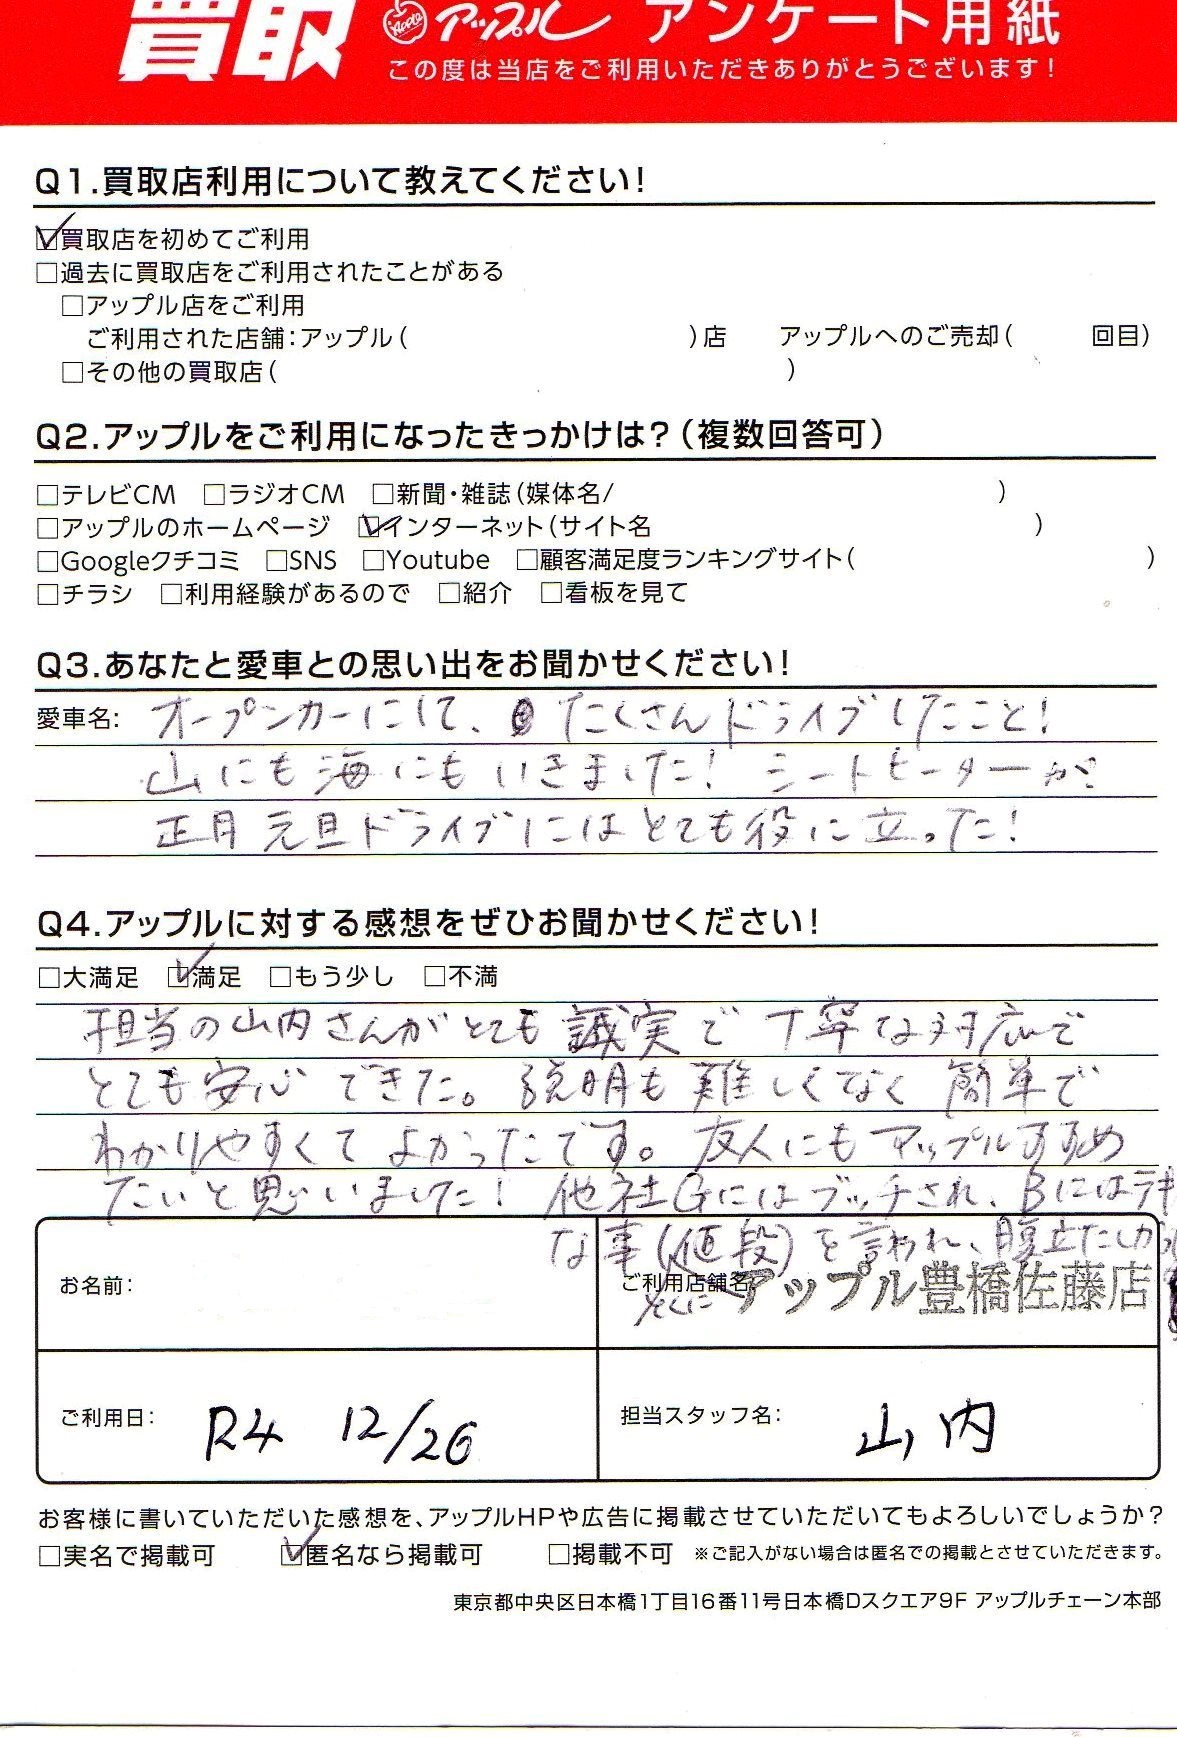 買取 Apple アップル アンケート用紙
この度は当店をご利用いただきありがとうございます！
Q1.買取店利用について教えてください！
☑買取店を初めてご利用
□過去に買取店をご利用されたことがある
□アップル店をご利用
ご利用された店舗：アップル（　　）店　アップルへのご売却（　　回目）
□その他の買取店（　　）
Q2.アップルをご利用になったきっかけは？（複数回答可）
□テレビCM　□ラジオCM　□新聞・雑誌（媒体名/　　）
□アップルのホームページ　☑インターネット（サイト名　　）
□Googleクチコミ　□SNS　□Youtube　□顧客満足度ランキングサイト（　　）
□チラシ　□利用経験があるので　□紹介　□看板を見て
Q3.あなたと愛車との思い出をお聞かせください！
愛車名：オープンカーにして、たくさんドライブしたこと！
山にも海にもいきました！シートヒーターが
正月元旦ドライブにはとても役に立った！
Q4.アップルに対する感想をぜひお聞かせください！
□大満足　☑満足　□もう少し　□不満
担当の山内さんがとても誠実で丁寧な対応で
とても安心できた。説明も難しくなく簡単で
わかりやすくてよかったです。友人にもアップルすすめ
たいと思いました！他社Gにはブッチされ、Bにはテキ
な事（値段）を言われ、腹立たしかっ
とくに
お名前：
ご利用店舗名 アップル豊橋佐藤店
ご利用日： R4 12/26
担当スタッフ名： 山内
お客様に書いていただいた感想を、アップルHPや広告に掲載させていただいてもよろしいでしょうか？
□実名で掲載可　☑匿名なら掲載可　□掲載不可　※ご記入がない場合は匿名での掲載とさせていただきます。
東京都中央区日本橋1丁目16番11号日本橋Dスクエア9F アップルチェーン本部